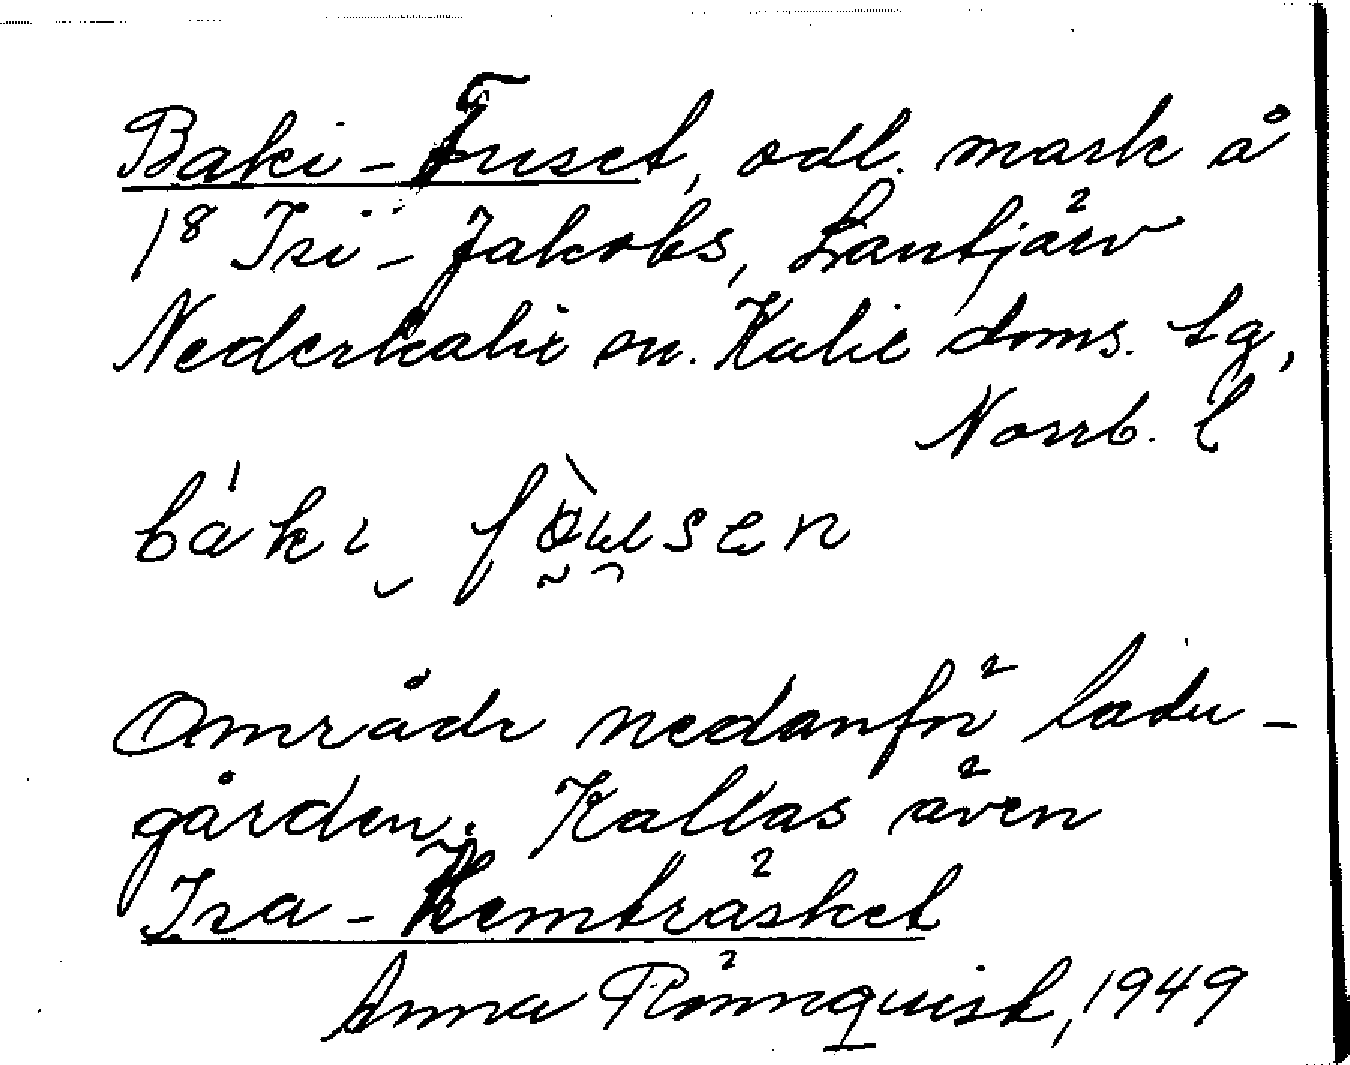 Baki-Fuset, odl. mark å
1⁸ Isi-Jakobs, Lantjärv
Nederkalix sn. Kalix doms. tg,
Norrb. l
báki fòusen
Område nedanför ladu-
gården. Kallas även
Isa-Hemträsket
Anna Rönnquist, 1949